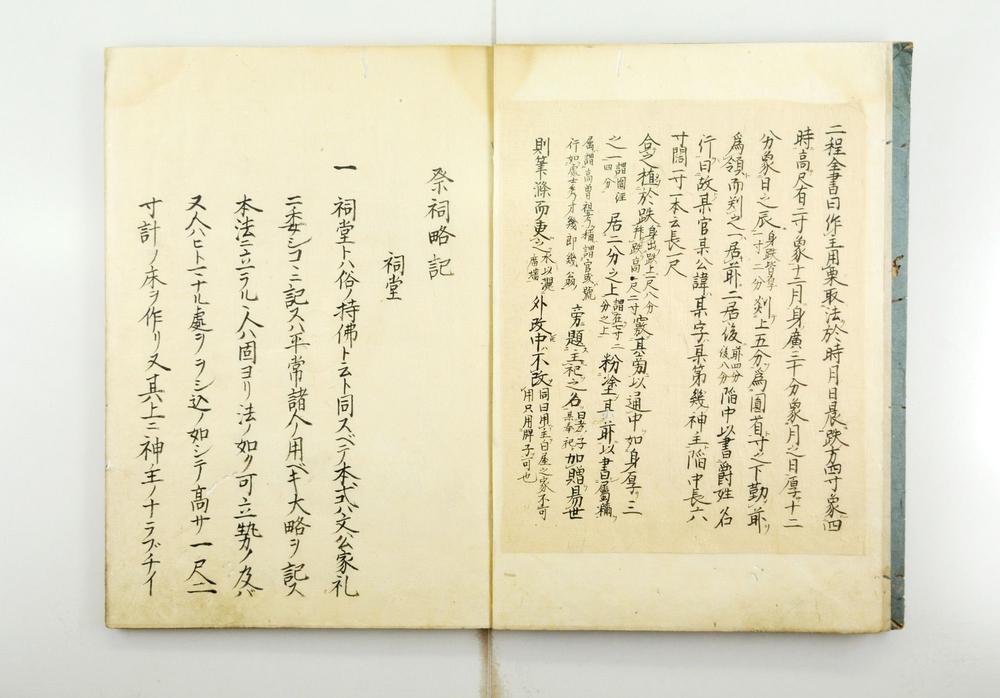 二程全書曰作主用栗取法於時月日辰趺方四寸象四
時高尺有二寸象十二月身廣三十分象月之日厚十二
分象日之辰身趺皆厚一寸二分剡上五分為圓首寸之下勒前
為領而判之一居前二居後前四分後八分陷中以書爵姓名
行曰故某官某公諱某字某第幾神主陷中長六
寸闊一寸一本云長一尺
合之植於趺身出趺上一尺八分并趺高一尺二寸竅其旁以通中如身厚三
之一謂圓徑四分居二分之上謂在七寸二分之上粉塗其前以書屬稱
屬謂高曾祖考稱謂官或號行如處士秀才幾郎幾翁旁題主祀之名曰孝子某奉祀加贈易世
則筆滌而更之水以灑廟墻外改中不改同曰用主白屋之家不可用只用牌子可也
祭祠略記
祠堂
一 祠堂トハ俗ノ持佛ト云ト同スベテ本式ハ文公家礼
ニ委シコヽニ記スハ平常諸人ノ用ベキ大略ヲ記ス
本法ニ立ラルヽ人ハ固ヨリ法ノ如ク可立勢ノ及バ
ヌ人ハヒトマナル處ヲヲシ込ノ如シテ高サ一尺二
寸計ノ床ヲ作リ又其上ニ神主ノナラブチイ